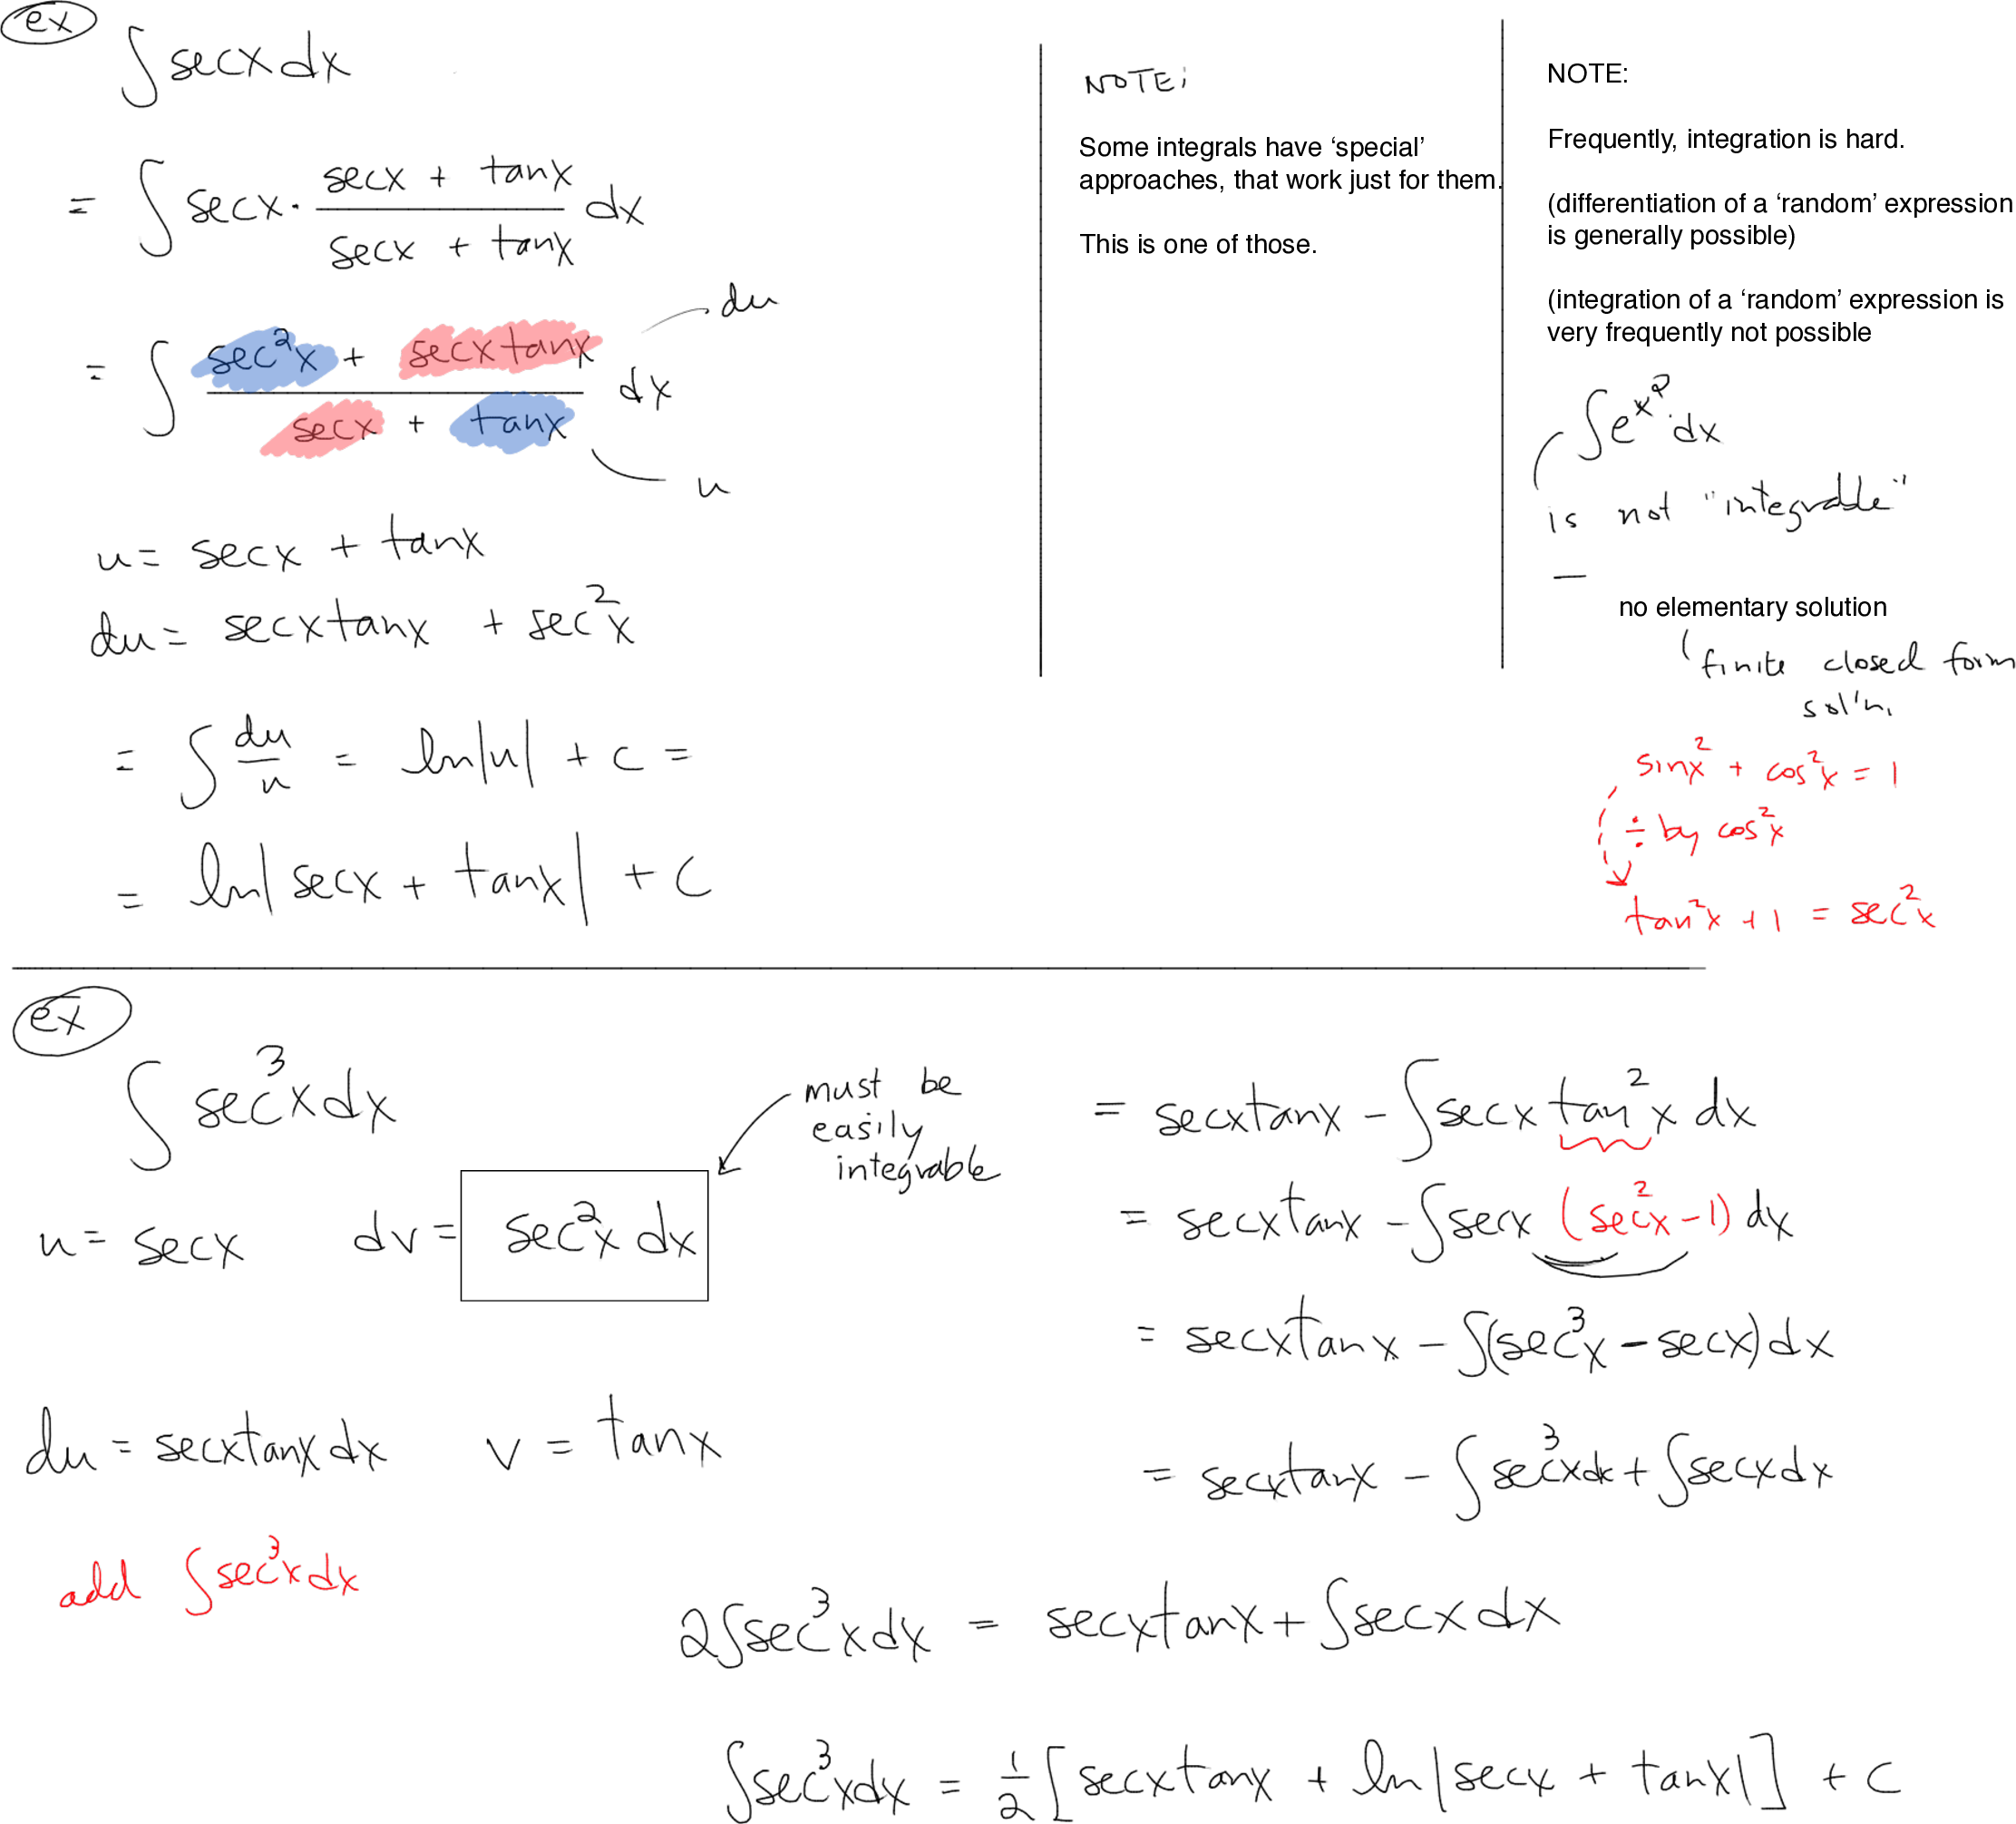 ex
∫ secx dx
= ∫ secx · (secx + tanx)/(secx + tanx) dx
= ∫ (sec²x + secxtanx)/(secx + tanx) dx
du
u
u = secx + tanx
du = secxtanx + sec²x
= ∫ du/u = ln|u| + c =
= ln|secx + tanx| + c
NOTE:
Some integrals have ‘special’
approaches, that work just for them.
This is one of those.
NOTE:
Frequently, integration is hard.
(differentiation of a ‘random’ expression
is generally possible)
(integration of a ‘random’ expression is
very frequently not possible
∫e^x² dx
is not "integrable"
—
no elementary solution
( finite closed form
sol'n.
sinx² + cos²x = 1
÷ by cos²x
tan²x + 1 = sec²x
ex
∫ sec³x dx
u = secx dv = sec²x dx
must be
easily
integrable
du = secxtanx dx v = tanx
add ∫sec³x dx
= secxtanx - ∫secx tan²x dx
= secxtanx - ∫secx (sec²x - 1) dx
= secxtanx - ∫(sec³x - secx) dx
= secxtanx - ∫sec³xdx + ∫secxdx
2∫sec³x dx = secxtanx + ∫secx dx
∫sec³xdx = 1/2 [secxtanx + ln|secx + tanx|] + c